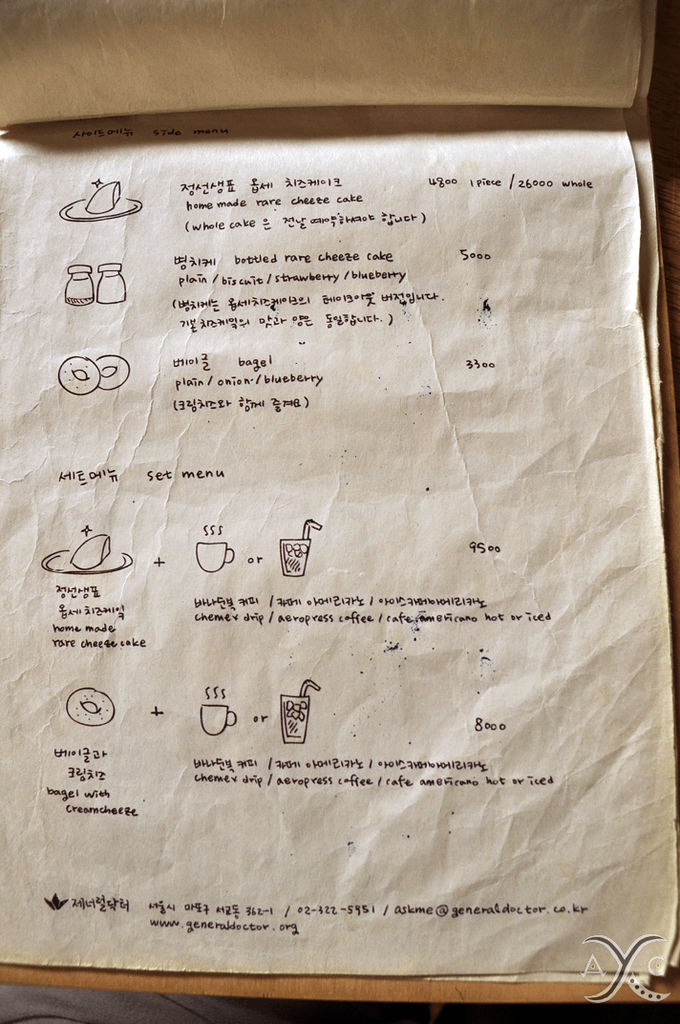 사이드메뉴 side menu
정선생표 옵세 치즈케이크 4800 1 piece / 26000 whole
home made rare cheeze cake
(whole cake 은 전날 예약하셔야 합니다)
병치케 bottled rare cheeze cake 5000
plain / biscuit / strawberry / blueberry
(병치케는 옵세치즈케이크의 테이크아웃 버전입니다.
기본치즈케익의 맛과 양은 동일합니다.)
베이글 bagel 3300
plain / onion / blueberry
(크림치즈와 함께 즐겨요)
세트메뉴 set menu
+ or 9500
정선생표
옵세치즈케익
home made
rare cheeze cake
커피 / 카페 아메리카노 / 아이스카페아메리카노
chemex drip / aeropress coffee / cafe americano hot or iced
+ or 8000
베이글과
크림치즈
bagel with
creamcheeze
커피 / 카페 아메리카노 / 아이스카페아메리카노
chemex drip / aeropress coffee / cafe americano hot or iced
제너럴닥터 서울시 마포구 서교동 362-1 / 02-322-5951 / askme@generaldoctor.co.kr
www.generaldoctor.org